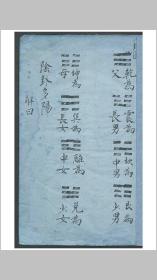 乾為父
震為長男
坎為中男
艮為少男
坤為母
巽為長女
離為中女
兌為少女
陰卦多陽
解曰